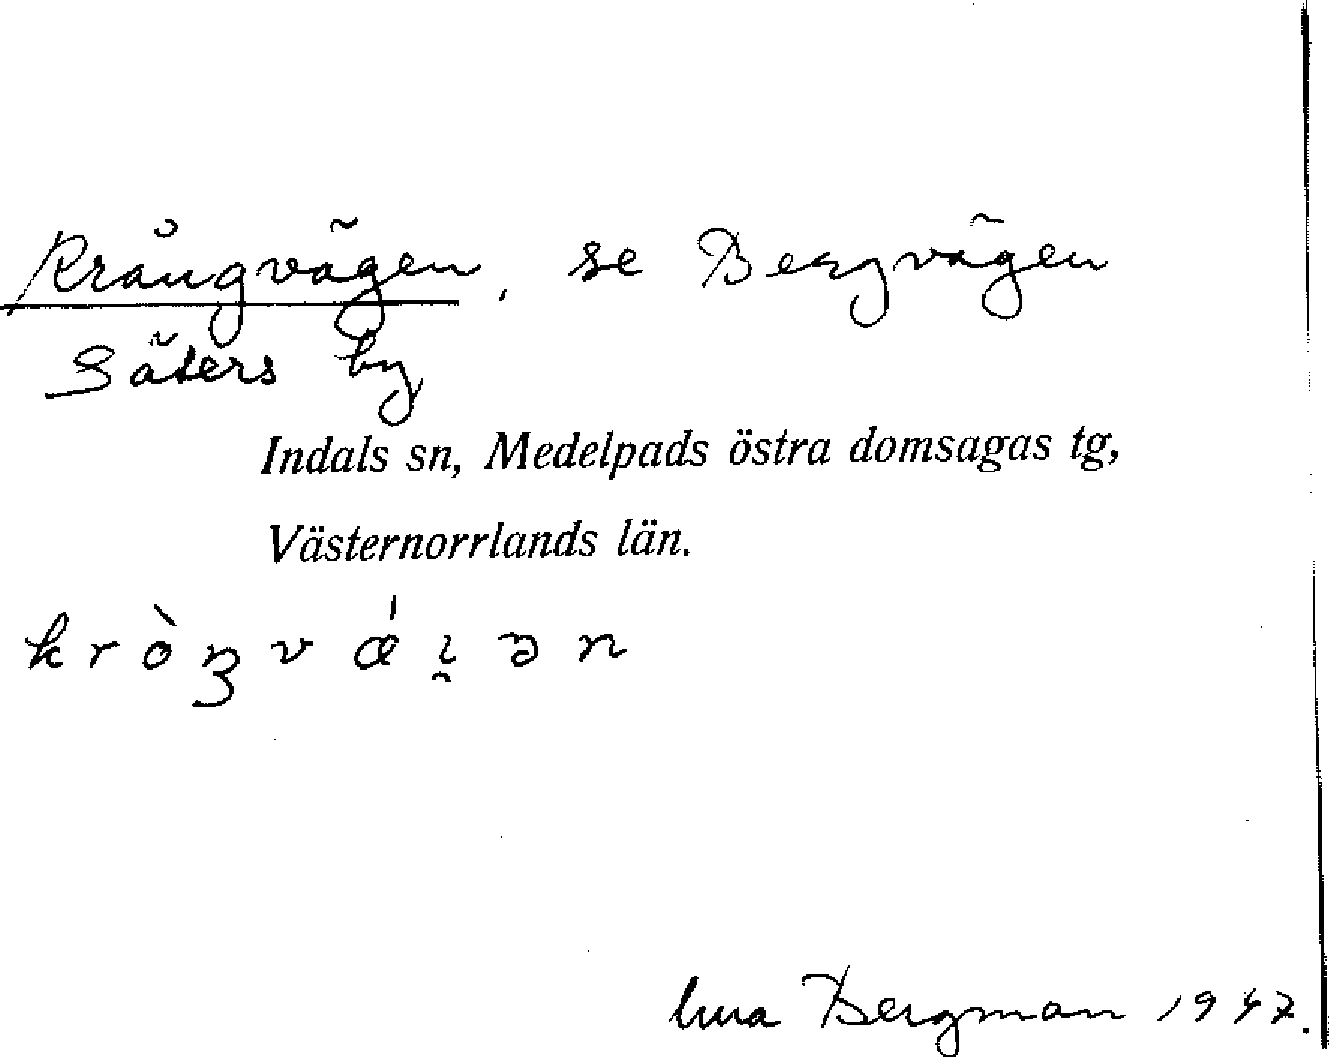 Krångvägen, se Bergvägen
Säters by
Indals sn, Medelpads östra domsagas tg,
Västernorrlands län.
kròŋvǽi̯ən
Bergman 1947.